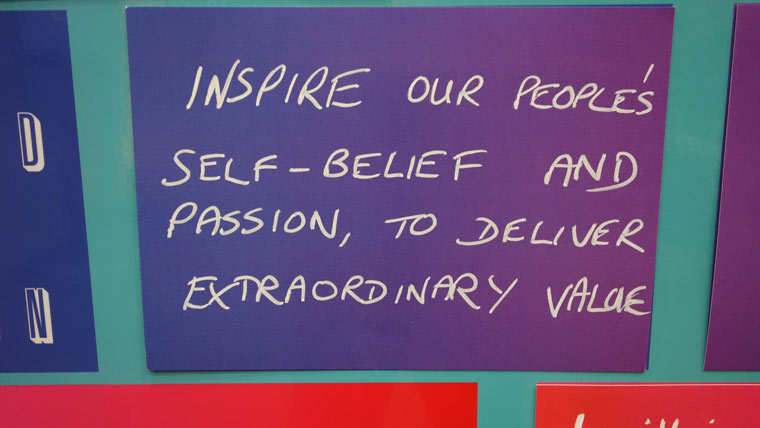 INSPIRE OUR PEOPLE'S
SELF-BELIEF AND
PASSION, TO DELIVER
EXTRAORDINARY VALUE
D
N